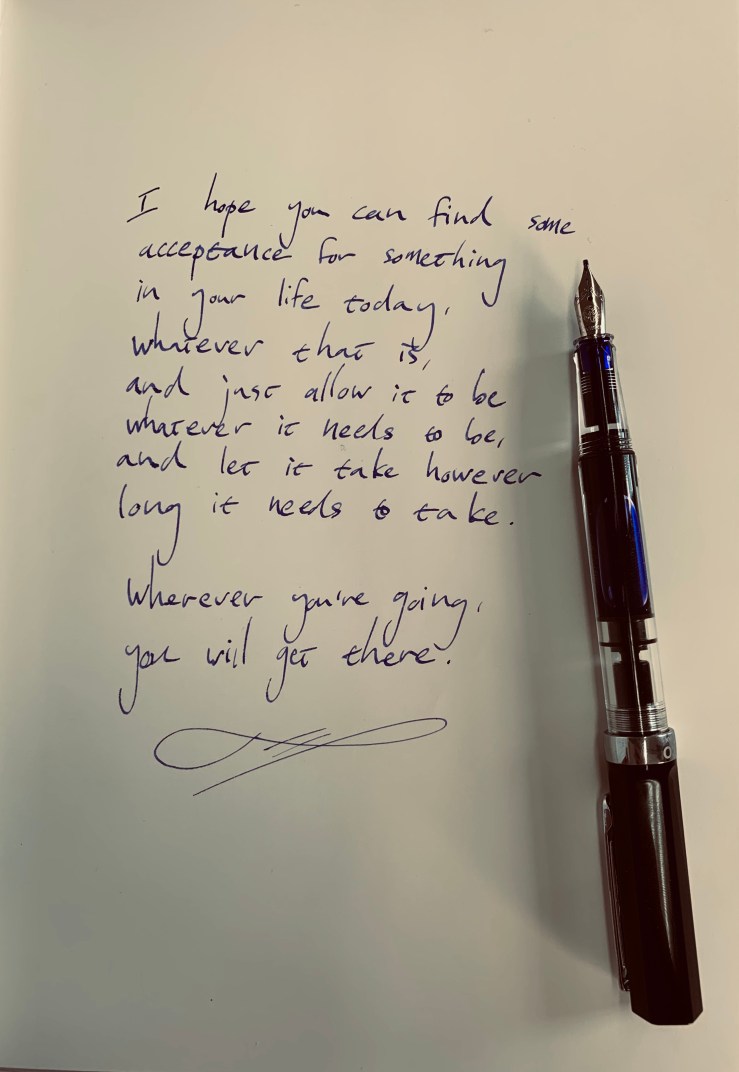 I hope you can find some
acceptance for something
in your life today,
whatever that is,
and just allow it to be
whatever it needs to be,
and let it take however
long it needs to take.
Wherever you're going,
you will get there.